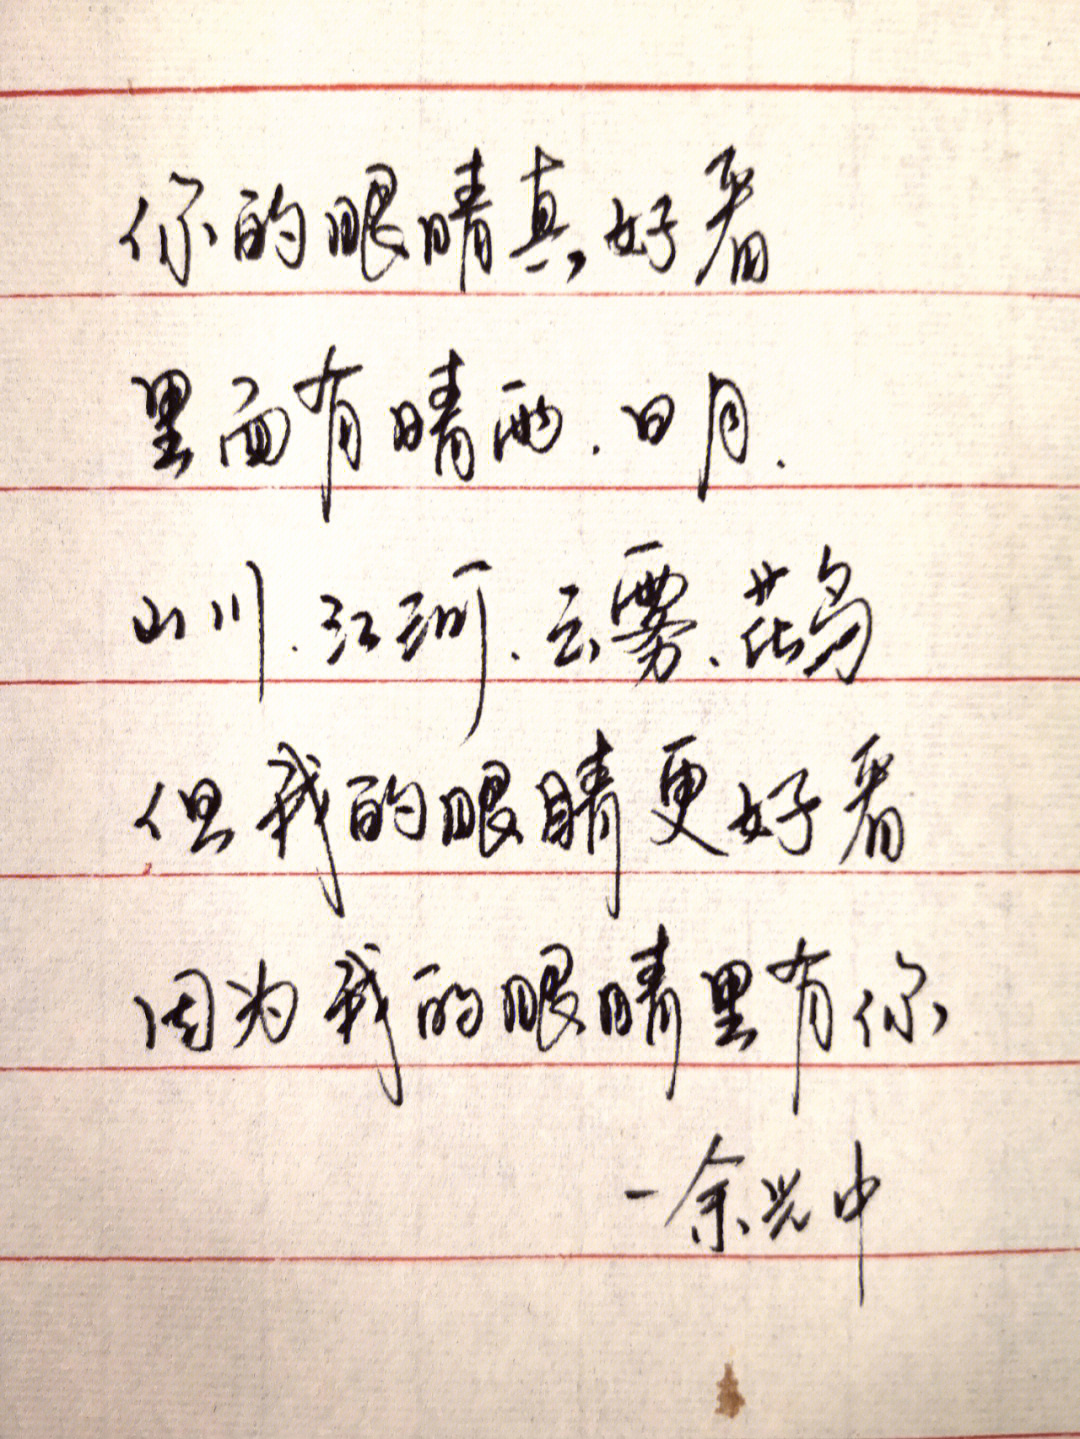 你的眼睛真好看
里面有晴雨.日月.
山川.江河.云雾、花鸟
但我的眼睛更好看
因为我的眼睛里有你
—余光中